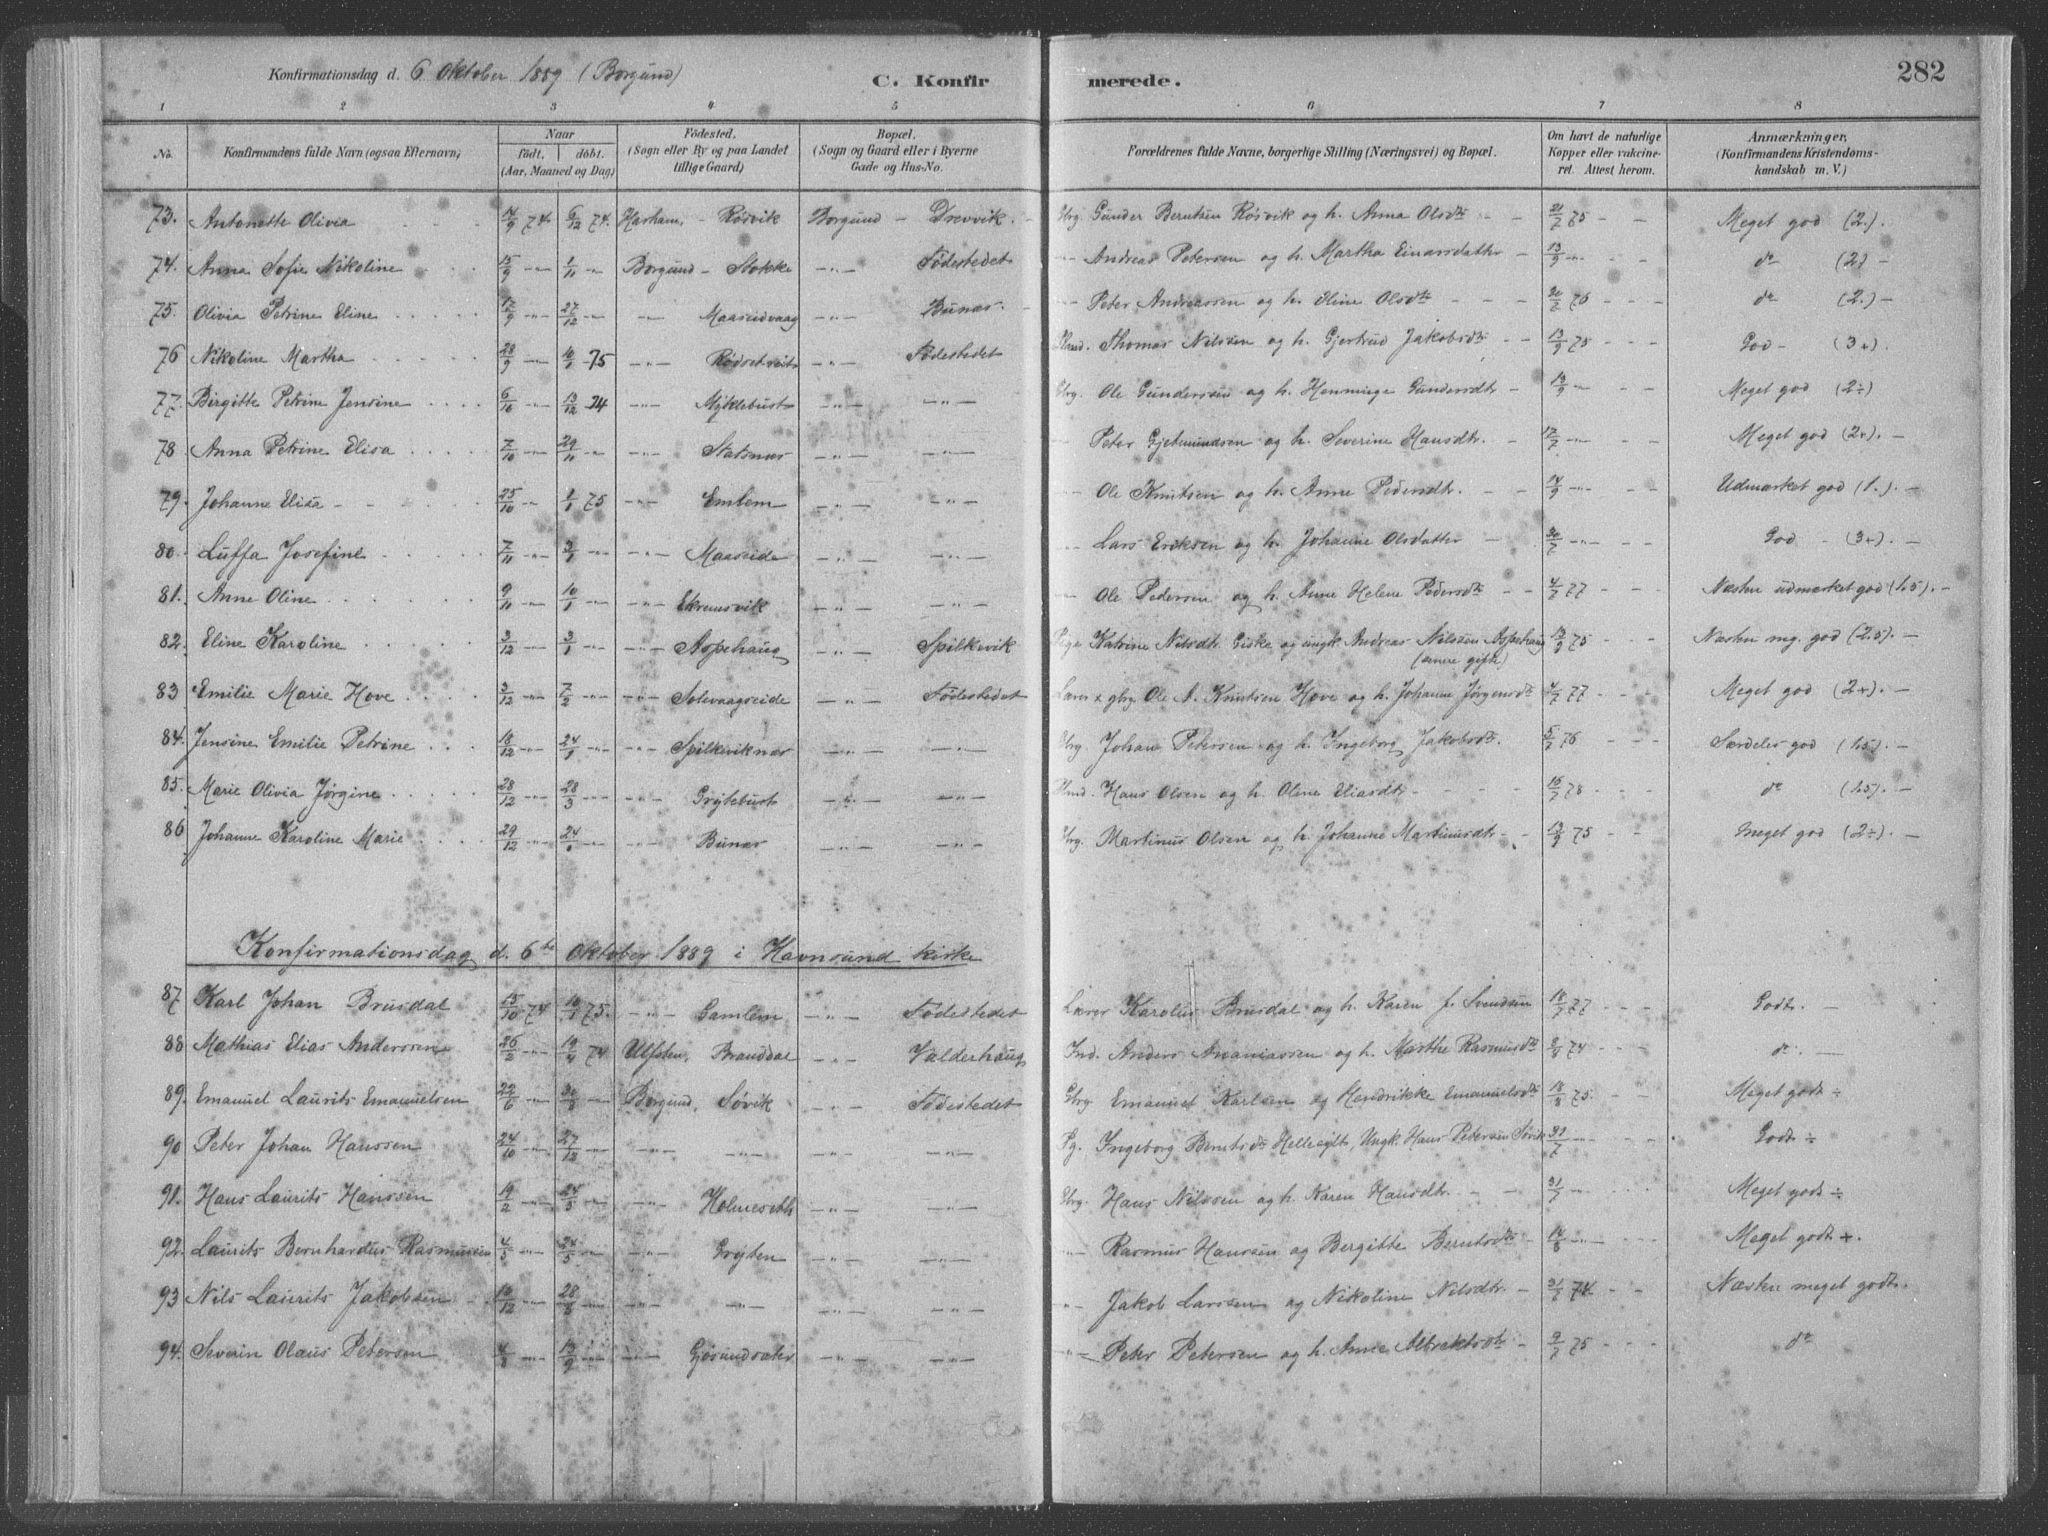 Konfirmationsdag d. 6 Oktober 1889 (Borgund) C. Konfirmerede. 282
1 2 3 4 5 6 7 8
No. Konfirmandens fulde Navn (ogsaa Efternavn) Naar født, døbt. (Aar, Maaned og Dag) Födested. (Sogn eller By og paa Landet tillige Gaard) Bopæl. (Sogn og Gaard eller i Byerne Gade og Hus-No. Forældrenes fulde Navne, borgerlige Stilling (Næringsvei) og Bopæl. Om havt de naturlige Kopper eller vakcineret. Attest herom. Anmærkninger, (Konfirmandens Kristendomskundskab m. V.)
73. Antonette Olivia 14/9 74 6/12 74. Harham, - Røsvik Borgund - Drevvik. Gbrg Gunder Berntsen Røsvik og h. Anna Olsdtr 21/7 75 - - Meget god (2.)
74. Anna Sofie Nikoline 15/9 -"- 1/11 -"- Borgund - Stokke -"- Födestedet -"- Andreas Petersen og h. Martha Einarsdatter 13/9 -"- - - do (2) -
75. Olivia Petrine Eline 17/9 -"- 27/12 -"- -"- Maaseidvaag -"- Bunæs. -"- Peter Andreassen og h. Eline Olsdtr 76 - - do (2.) -
76 Nikoline Martha 28/9 -"- 10/1 75 -"- Rødsetveit -"- Födestedet Thomas Nilssen og h. Gjertrud Jakobsdtr 13/9 75 - - God - (3+).
77. Birgitte Petrine Jensine 6/10 -"- 13/12 74 -"- Myklebust -"- -"- Gbrg. Ole Gunderssen og h. Henninge Gundersdtr 13/9 -"- - - Meget god (2÷)
78 Anna Petrine Elisa 7/10 -"- 29/11 -"- -"- Slatsnæs -"- -"- Peter Gjetmundsen og h. Severine Hansdtr. 17/7 -"- - - Meget god (2+). -
79. Johanne Elisa 25/10 -"- 1/1 75 -"- Emlem -"- -"- -"- Ole Knutsen og h. Anne Pedersdtr. 14/9 -"- - - Udmærket god (1.). -
80. Luffa Josefine 7/11 -"- 3/1 -"- -"- Maaseide -"- -"- -"- Lars Eriksen og h. Johanne Olsdatter -"- - - God - (3+). -
81. Anne Oline 9/11 -"- 10/1 -"- -"- Ekremsvik -"- -"- -"- Ole Pedersen og h. Anne Helene Pedersdtr 4/7 77 - - Næsten udmærket god (1.5). -
82. Eline Karoline 3/12 -"- 3/1 -"- -"- Aspehaug -"- Spilkevik Pige Katrine Nilsdtr. Giske og ungk. Andreas Nilssen Aspehaug 13/9 75 - - Næsten mg. god (2.5). -
(senere gifte)
83 Emilie Marie Hove 3/12 -"- 7/2 -"- -"- Solevaagseide -"- Födestedet Lærer x gbrg Ole A. Knutsen Hove og h. Johanne Jørgensdtr 77 - - Meget god (2+). -
84. Jensine Emilie Petrine 18/12 -"- 24/1 -"- -"- Spilkeviknæs -"- -"- Gbrg Johan Petersen og h. Ingeborg Jakobsdtr. 76 - - Særdeles god (1.5). -
85. Marie Olivia Jørgine 28/12 -"- 28/3 -"- -"- Grytebust -"- -"- Hans Olsen og h. Oline Eliasdtr 16/7 78 - - do (1.5). -
86 Johanne Karoline Marie 29/12 -"- 24/1 -"- -"- Bunæs -"- -"- Gbrg. Martinus Olsen og h. Johanne Martinusdtr 13/9 75 - - Meget god (2÷). -
Konfirmationsdag d. 6te Oktober 1889 i Havnsund kirke
87 Karl Johan Brusdal 15/10 74 10/1 75. -"- Gamlem -"- Födestedet Lærer Karolus Brusdal og h. Karen f. Svendsen 18/7 77 - - Godt. -
88 Mathias Elias Anderssen 26/2 -"- 19/4 74 Ulfsten, Branddal -"- Valderhaug Ind. Anders Ananiassen og h. Marthe Rasmusdtr 74 - - do. -
89. Emanuel Laurits Emanuelsen 22/6 -"- 30/8 -"- Borgund, Søvik -"- Födestedet Gbrg Emanuel Karlsen og Hendrikke Emanuelsdtr 18/8 75. - - Meget godt ÷
90 Peter Johan Hanssen 24/10 -"- 27/12 -"- -"- -"- -"- -"- Pg. Ingeborg Berntsdtr Hellesylt, Ungk. Hans Petersen Søvik 31/7 -"- - - Godt ÷
91. Hans Laurits Hanssen 19/2 -"- 24/5 -"- -"- Holmeseth -"- -"- Gbrg Hans Nilssen og h. Karen Hansdtr. 31/7 -"- - - Meget godt ÷
92. Laurits Bernhardus Rasmussen 4/5 -"- 24/5 -"- -"- Gryten -"- -"- -"- Rasmus Hanssen og Bergitte Berntsdtr 14/8 -"- - - Meget godt +.
93 Nils Laurits Jakobsen 10/12 -"- 28/5 -"- -"- -"- -"- -"- -"- Jakob Larssen og Nikoline Nilsdtr. 74 - - Næsten meget godt.
94. Severin Olaus Petersen 4/8 -"- 13/9 -"- -"- Gjøsundsæter -"- -"- -"- Peter Petersen og h. Anne Albrektsdtr 9/7 75 - - do